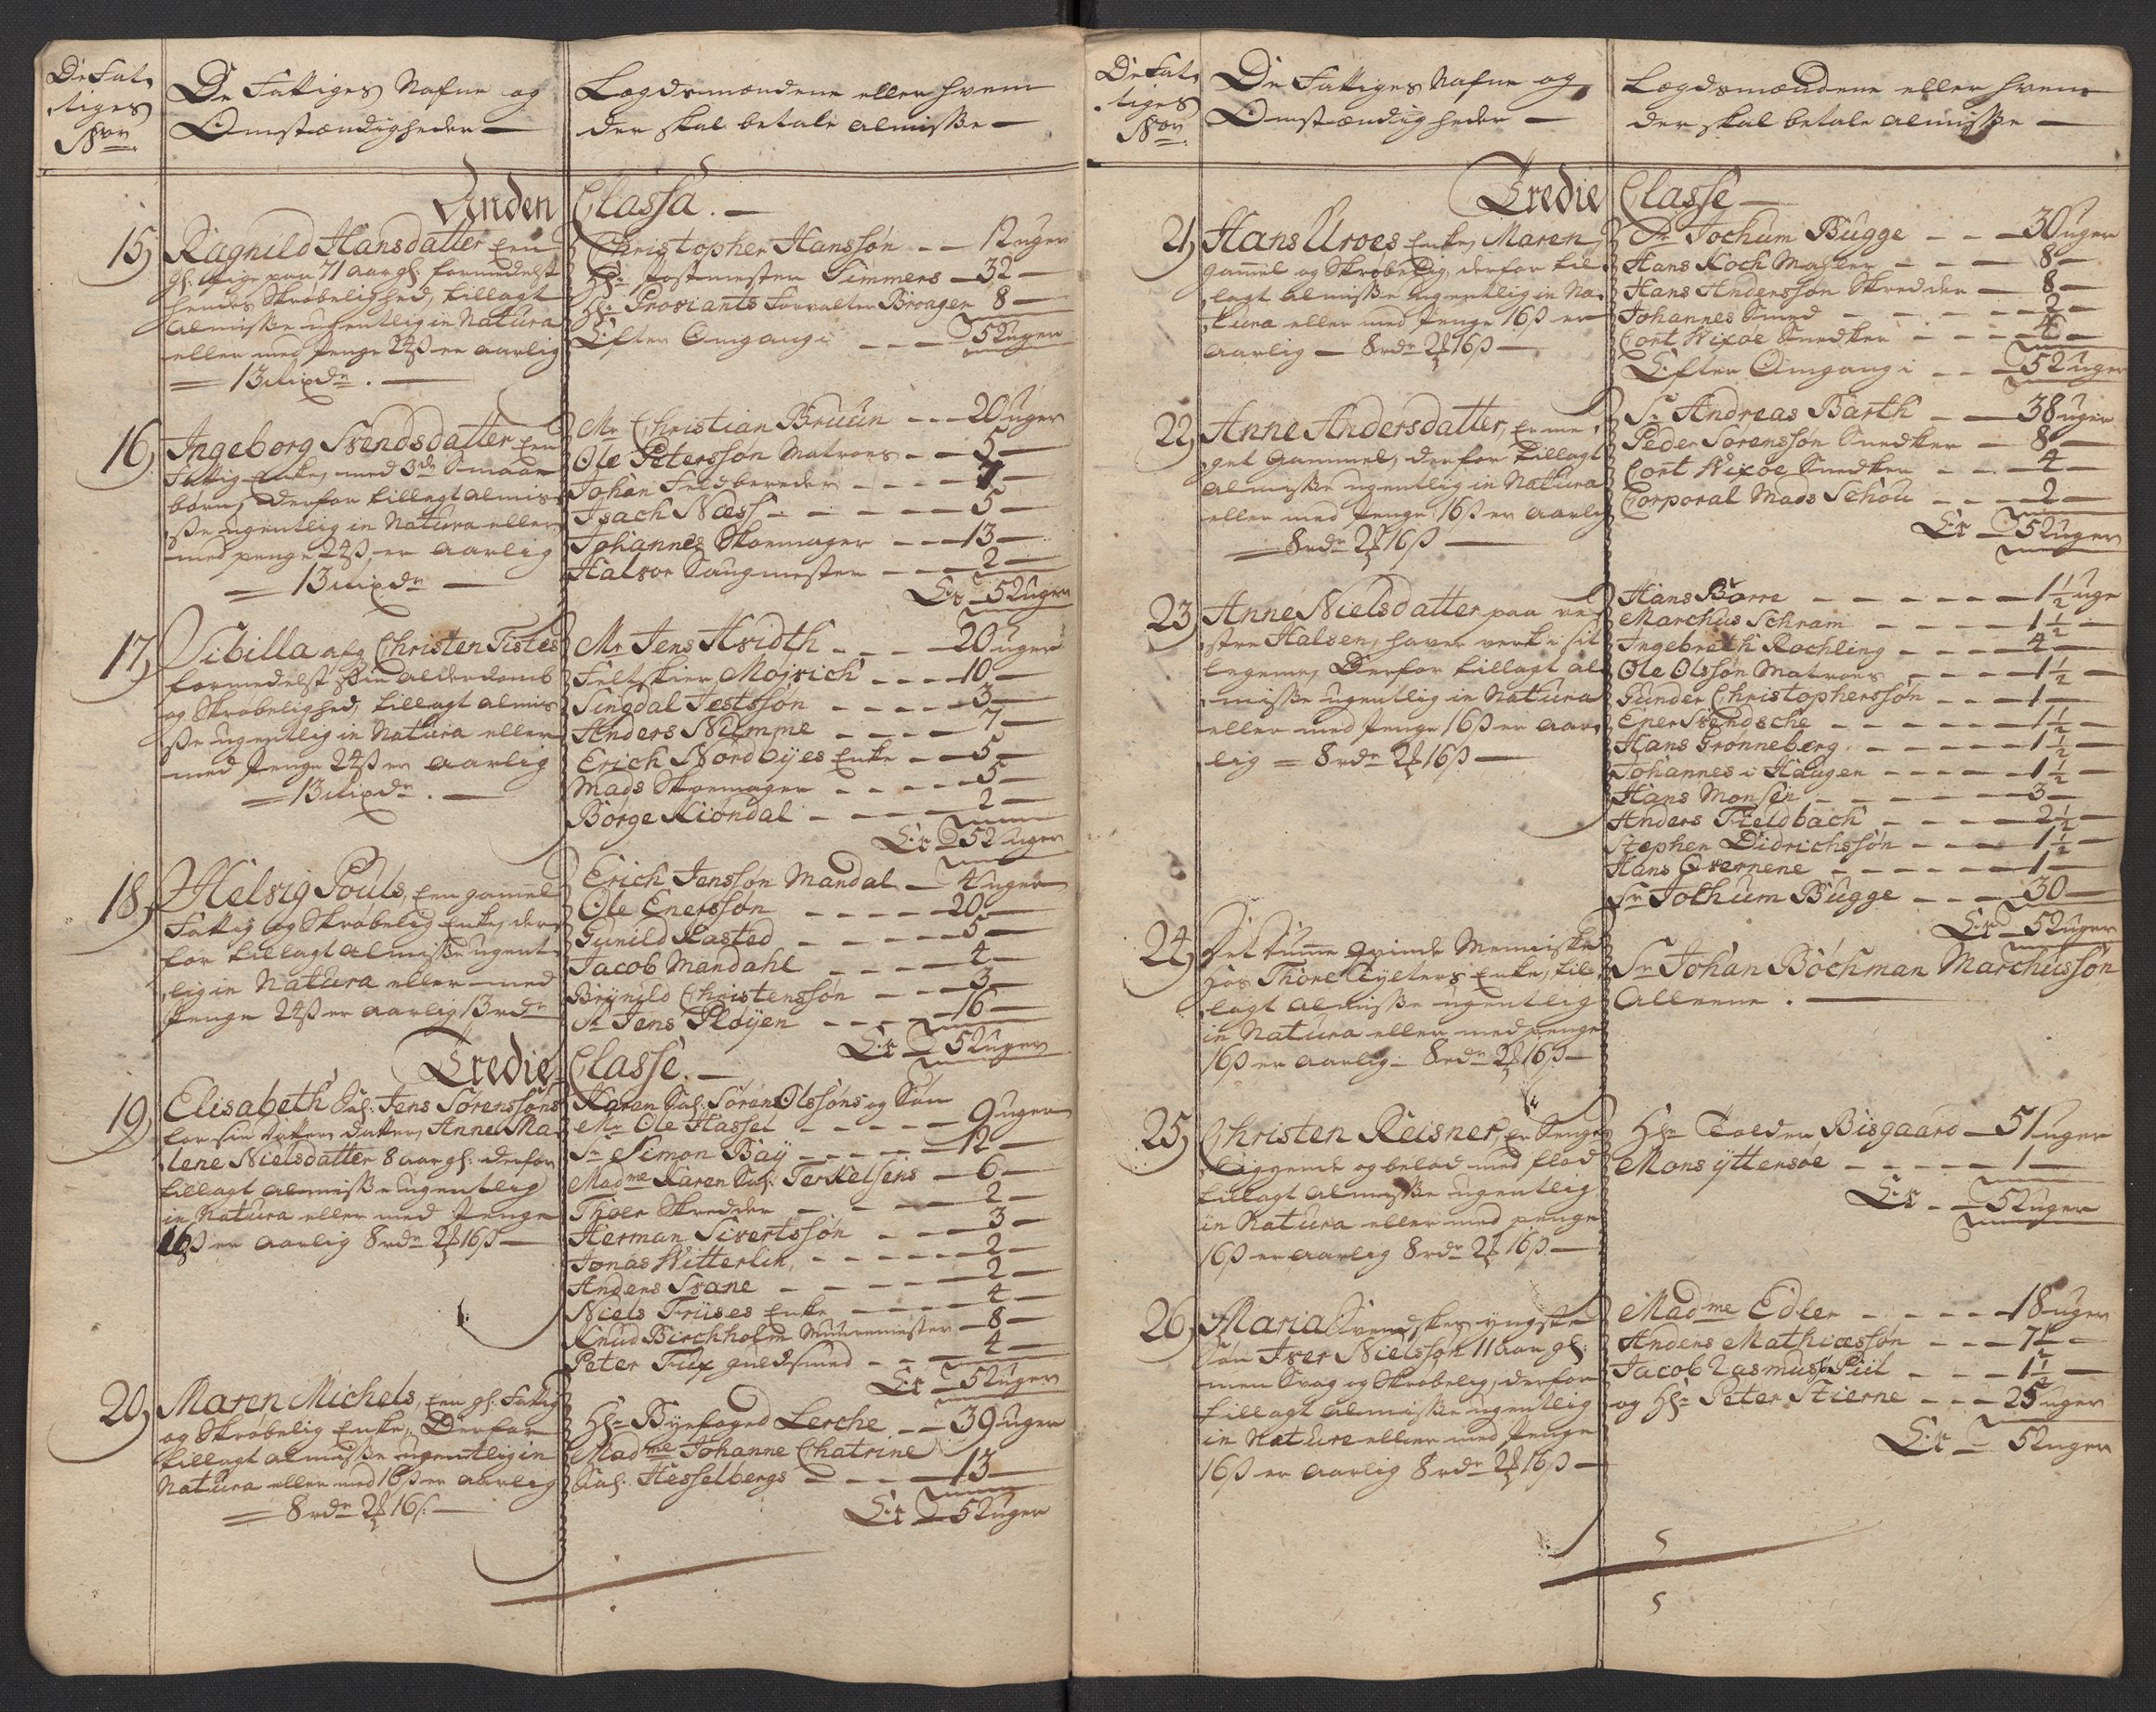 De Fat-
tiges
No.
De Fattiges Nafne og
Omstændigheder —
Lægdsmændene eller hvem
der skal betale Almisse —
Anden Classe. —
15, Ragnild Hansdatter Een
gl. Pige paa 71 aar gl. formedelst
hendes Skrøbelighed, tillagt
Almisse ugentlig in Natura
eller med Penge 24ß er aarlig
— 13 rixdr. —
Christopher Hanssøn — — 12 uger
Hr. Postmester Simmers — 32 —
Hr. Proviants Forvalter Broager 8 —
Efter Omgang i — — 52 uger
16, Ingeborg Svendsdatter Een
Fattig Enke, med 3de Smaae
børn, derfor tillagt Almis-
se ugentlig in Natura eller
med penge 24ß er aarlig
— 13 rixdr —
Mr Christian Bruun — — 20 uger
Ole Peterssøn Matroes — — 5 —
Johan Feldbereder — — — 7 —
Isach Næss — — — — 5 —
Johannes Skoemager — — 13 —
Halvor Saugmester — — 2 —
Er — 52 uger
17, Sibilla afg Christen Tistes
formedelst sin Alderdomb
og Skrøbelighed, tillagt Almis
se ugentlig in Natura eller
med Penge 24ß er aarlig
— 13 rixdr. —
Mr Jens Hvidth — — — 20 uger
Feltskier Mojrich — — — 10 —
Singdal Jestssøn — — — 3 —
Anders Nümme — — — 7 —
Erich Nordbyes Enke — — 5 —
Mads Skoemager — — — 5 —
Børge Kiøndal — — — 2 —
Er — 52 uger
18, Helvig Pouls, Een gammel
Fattig og Skrøbelig Enke, der-
for tillagt Almisse ugent-
lig in Natura eller med
Penge 24ß er aarlig 13 rdr
Erich Jenssøn Mandal — 4 uger
Ole Enerssøn — — — 20 —
Gunild Kasted — — — 5 —
Jacob Mandahl — — — 4 —
Brynild Christenssøn — — 3 —
Sr Jens Pløyen — — — 16 —
Er — 52 uger
Tredie Classe. —
19, Elisabeth Sal. Jens Sørenssøns
for sin datter, Anne Ma-
lene Nielsdatter 8 aar gl. derfor
tillagt Almisse ugentlig
in Natura eller med Penge
16ß er aarlig 8 rdr 2 16ß —
Karen Sal. Søren Olssøns og Søn
Mr Ole Hassel — — — 9 uger
Sr Simon Bay — — — 12 —
Madme Karen Sal. Terkelsens — 6 —
Thoer Skredder — — — 2 —
Herman Sivertssøn — — — 3 —
Jonas Witterlin, — — — 2 —
Anders Svane — — — 2 —
Niels Früses Enke — — — 4 —
Knud Birchholm Muurmester — 8 —
Peter Fux guldsmed — — 4 —
Er — 52 uger
20, Maren Michels, Een gl. Fattig
og Skrøbelig Enke, Derfor
tillagt Almisse ugentlig in
Natura eller med 16ß er aarlig
— 8 rdr 2 16ß. —
Hr. Byefoged Lerche — — 39 uger
Madme Johanne Chatrine
Sal. Hesselbergs — — — 13 —
Er — 52 uger
De Fat-
tiges
No.
De Fattiges Nafne og
Omstændigheder —
Lægdsmændene eller hvem
der skal betale Almisse —
Tredie Classe —
21, Hans Uroes Enke, Maren,
gammel og Skrøbelig, derfor til-
lagt Almisse ugentlig in Na-
tura eller med Penge 16ß er
aarlig — 8 rdr 2 16ß —
Sr Jochum Bugge — — — 30 uger
Hans Koch Mahler — — — 8 —
Hans Anderssøn Skredder — 8 —
Johannes Smed — — — 2 —
Cort Wixøe Snedker — — — 4 —
Efter Omgang i — — 52 uger
22, Anne Andersdatter, Er me-
get Gammel, derfor tillagt
Almisse ugentlig in Natura
eller med Penge 16ß er aarlig
— 8 rdr 2 16ß —
Sr Andreas Barth — — 38 uger
Peder Sørenssøn Snedker — 8 —
Cort Wixøe Snedker — — 4 —
Corporal Mads Schou — — 2 —
Er — 52 uger
23, Anne Nielsdatter paa ve-
stre Halsen, haver verk i sit
legeme, Derfor tillagt Al-
misse ugentlig in Natura
eller med Penge 16ß er aar-
lig — 8 rdr 2 16ß —
Hans Borre — — — — 1½ uge
Marchus Schram — — — 1½ —
Ingebreth Røchling — — — 4 —
Ole Olssøn Matroes — — — 1½ —
Gunder Christopherssøn — — 1 —
Ener Svendsche — — — 1½ —
Hans Grønneberg — — — 1½ —
Johannes i Haugen — — — 1½ —
Hans Monsen — — — 3 —
Anders Fieldbach — — — 2½ —
Stephen Didrichssøn — — — 1½ —
Hans Qvernene — — — 1 —
Sr Jochum Bugge — — — 30 —
Er — 52 uger
24, Det dumme qvinde Menniske
hos Thore Tylters Enke, til-
lagt Almisse ugentlig
in Natura eller med penge
16ß er aarlig — 8 rdr 2 16ß —
Sr Johan Bøchman Marchussøn
Alleene. —
25, Christen Reisner, Er Senge-
liggende og belad med flod
tillagt Almisse ugentlig
in Natura eller med penge
16ß er aarlig 8 rdr 2 16ß —
Hr Tolder Bisgaard — 51 uger
Mons yttersøe — — — 1 —
Er — — 52 uger
26, Maria Svendskes yngste
Søn Iver Nielssøn 11 aar gl.
men Svag og Skrøbelig, derfor
tillagt Almisse ugentlig
in Nature eller med Penge
16ß er aarlig 8 rdr 2 16ß —
Madme Edler — — — — 18 uger
Anders Mathiæssøn — — — 7½ —
Jacob Rasmuss. Piil — — — 1½ —
og Hr. Peter Stierne — — — 25 uger
Er — 52 uger